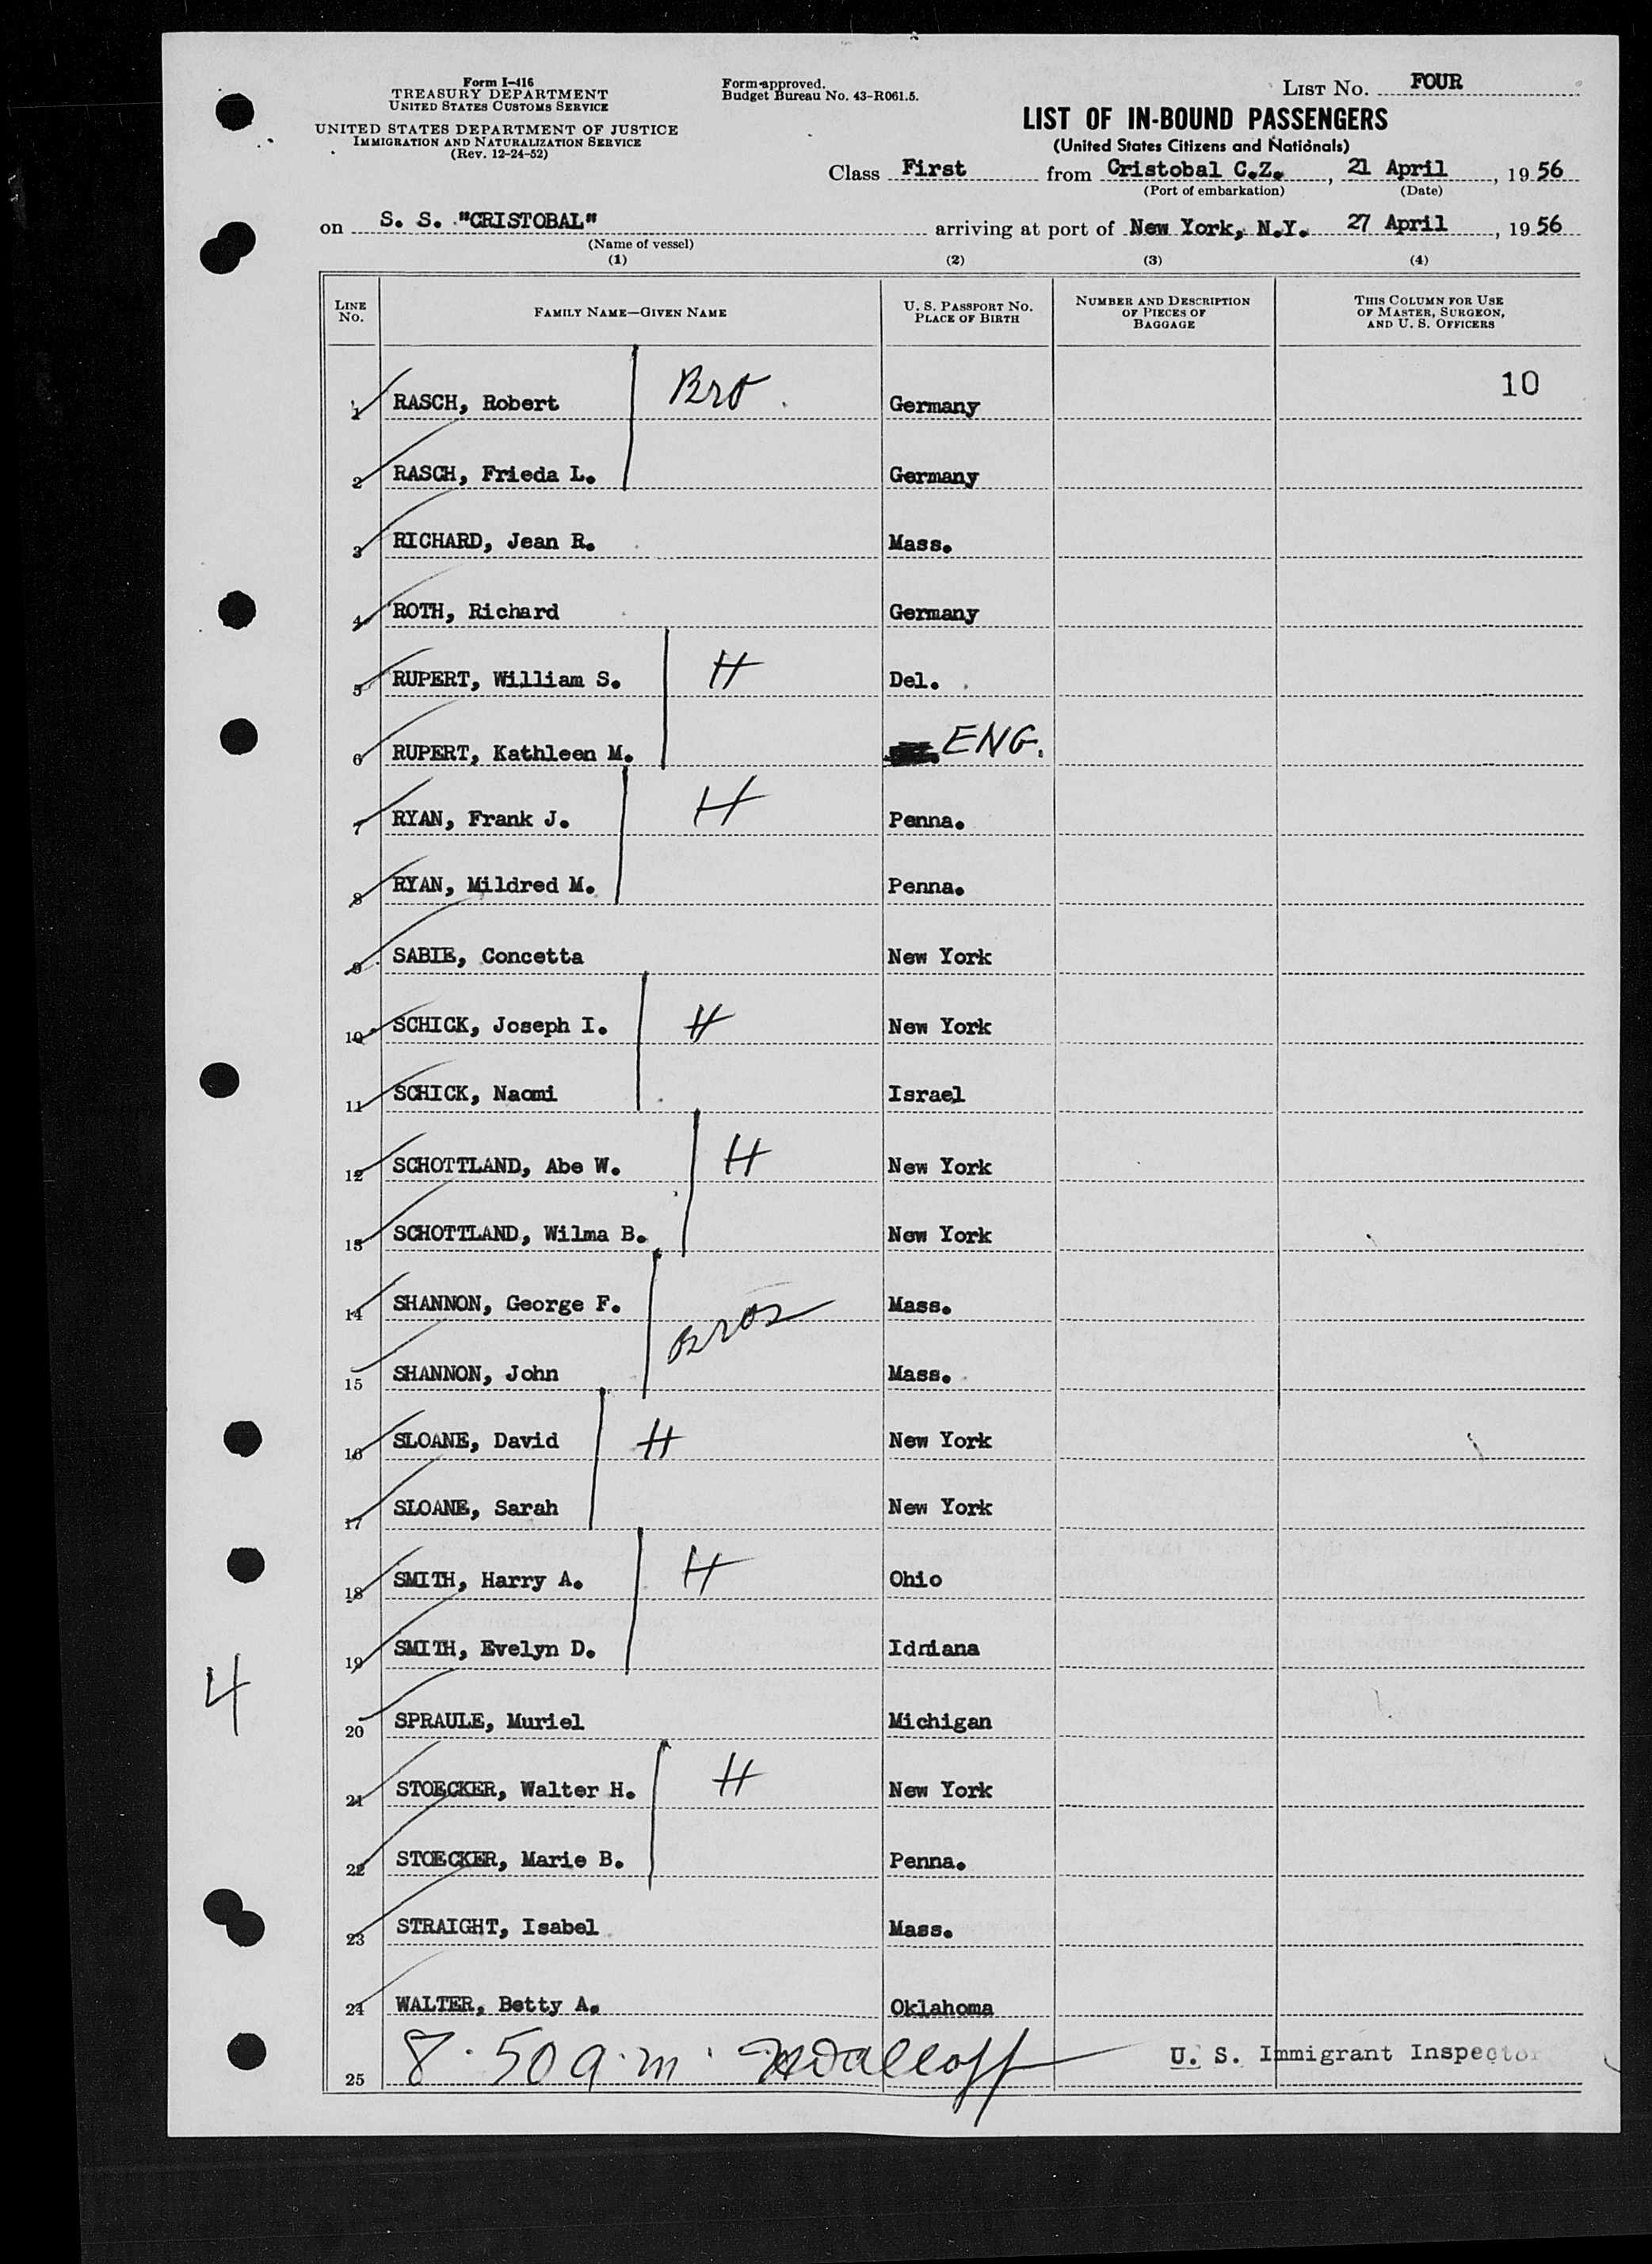 Form I-416
TREASURY DEPARTMENT
UNITED STATES CUSTOMS SERVICE
UNITED STATES DEPARTMENT OF JUSTICE
IMMIGRATION AND NATURALIZATION SERVICE
(Rev. 12-24-52)
Form approved.
Budget Bureau No. 43-R061.5.
LIST NO. FOUR
LIST OF IN-BOUND PASSENGERS
(United States Citizens and Nationals)
Class First from Cristobal C.Z., 21 April, 1956
(Port of embarkation) (Date)
on S. S. "CRISTOBAL" arriving at port of New York, N.Y. 27 April, 1956
(Name of vessel)
(1) (2) (3) (4)
LINE NO. FAMILY NAME—GIVEN NAME U. S. PASSPORT NO. PLACE OF BIRTH NUMBER AND DESCRIPTION OF PIECES OF BAGGAGE THIS COLUMN FOR USE OF MASTER, SURGEON, AND U. S. OFFICERS
1 RASCH, Robert Bro Germany 10
2 RASCH, Frieda L. Germany
3 RICHARD, Jean R. Mass.
4 ROTH, Richard Germany
5 RUPERT, William S. H Del.
6 RUPERT, Kathleen M. ENG.
7 RYAN, Frank J. H Penna.
8 RYAN, Mildred M. Penna.
9 SABIE, Concetta New York
10 SCHICK, Joseph I. H New York
11 SCHICK, Naomi Israel
12 SCHOTTLAND, Abe W. H New York
13 SCHOTTLAND, Wilma B. New York
14 SHANNON, George F. Bros Mass.
15 SHANNON, John Mass.
16 SLOANE, David H New York
17 SLOANE, Sarah New York
18 SMITH, Harry A. H Ohio
19 SMITH, Evelyn D. Idniana
4
20 SPRAULE, Muriel Michigan
21 STOECKER, Walter H. H New York
22 STOECKER, Marie B. Penna.
23 STRAIGHT, Isabel Mass.
24 WALTER, Betty A. Oklahoma
25 8.50 a.m. U. S. Immigrant Inspector